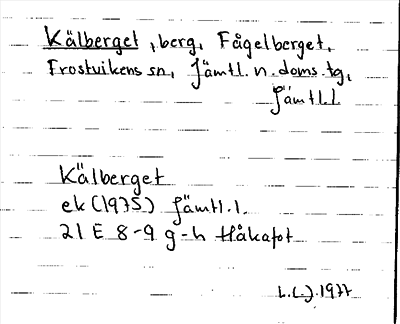 Kälberget, berg, Fågelberget,
Frostvikens sn, Jämtl. n. doms. tg,
Jämtl.l
Kälberget
ek (1975) Jämtl.l.
21 E 8-9 g-h Håkafot
L.L.J. 1977